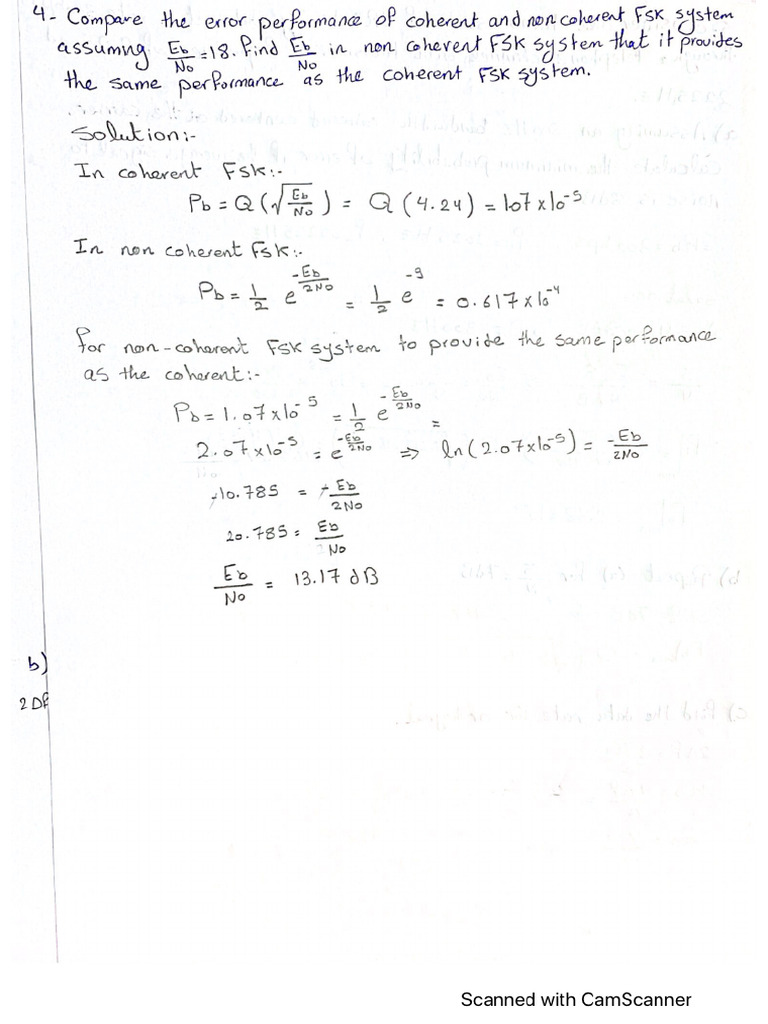 4- Compare the error performance of coherent and non coherent FSK system
assuming Eb/No = 18. Find Eb/No in non coherent FSK system that it provides
the same performance as the coherent FSK system.
Solution:-
In coherent FSK:-
Pb = Q (√Eb/No) = Q (4.24) = 1.07 x 10^-5
In non coherent FSK:-
Pb = 1/2 e^(-Eb/2No) = 1/2 e^-9 = 0.617 x 10^-4
for non-coherent FSK system to provide the same performance
as the coherent:-
Pb = 1.07 x 10^-5 = 1/2 e^(-Eb/2No) =
2.07 x 10^-5 = e^(-Eb/2No) => ln (2.07 x 10^-5) = -Eb/2No
-10.785 = -Eb/2No
20.785 = Eb/No
Eb/No = 13.17 dB
b)
2Df
Scanned with CamScanner